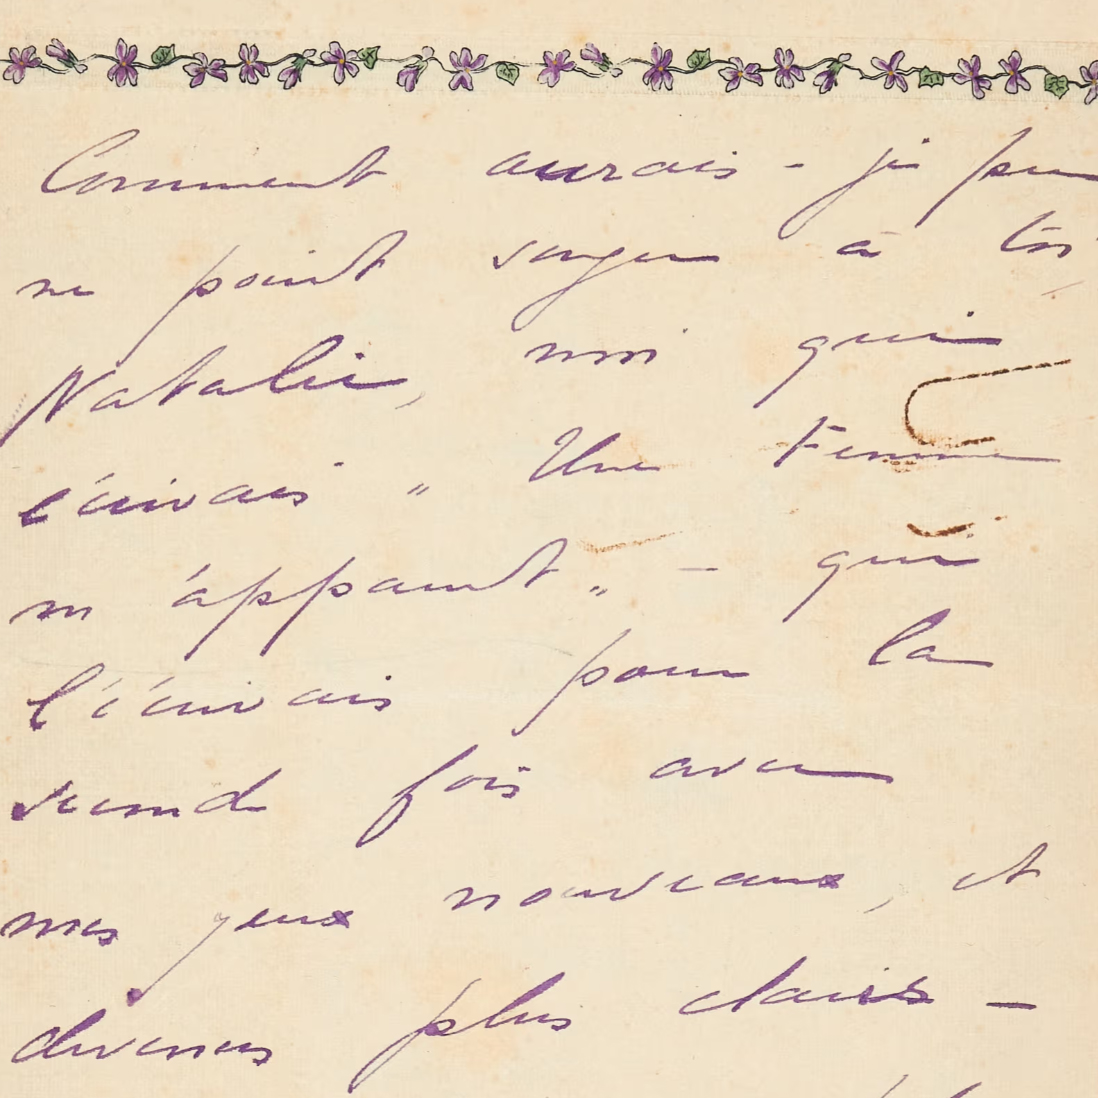 Comment aurais-je pu
ne point songer à toi,
Natalie, moi qui
écrivais " Une Femme
m'apparut " - qui
l'écrivais pour la
seconde fois avec
mes yeux nouveaux, et
devenus plus clairs -